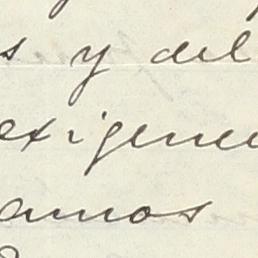 s y del
exigenc
amos